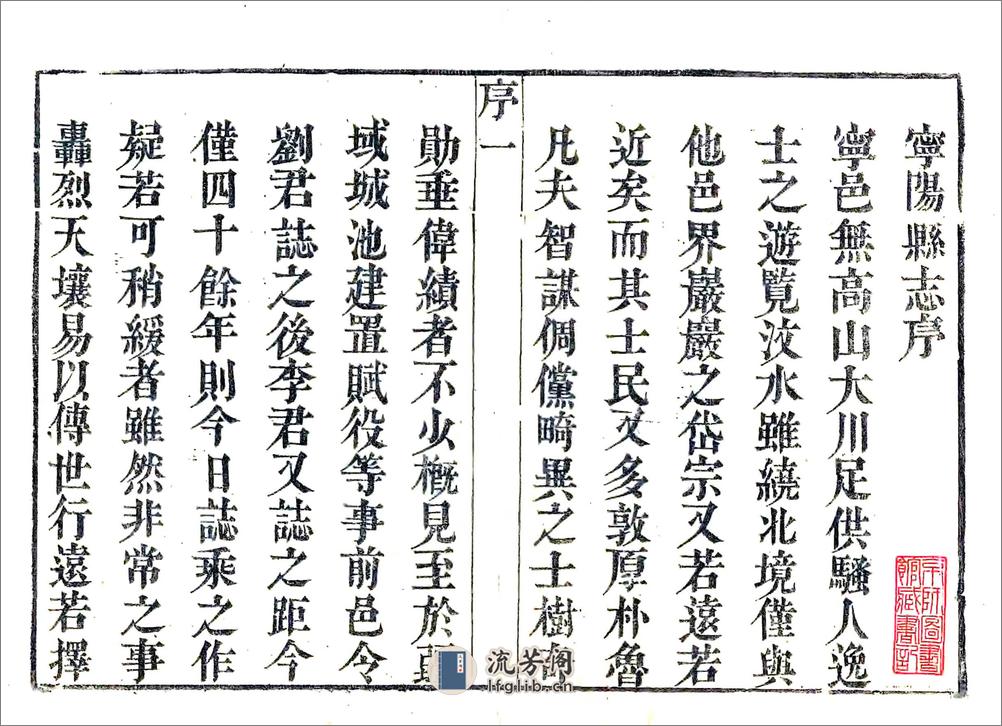 寧陽縣志序
寧邑無高山大川足供騷人逸
士之遊覽汶水雖繞北境僅與
他邑界巖巖之岱宗又若遠若
近矣而其士民又多敦厚朴魯
凡夫智謀倜儻畸異之士樹
序一
勛垂偉績者不少概見至於
域城池建置賦役等事前邑令
劉君誌之後李君又誌之距今
僅四十餘年則今日誌乘之作
疑若可稍緩者雖然非常之事
轟烈天壤易以傳世行遠若擇
流芳阁
lfglib.cn